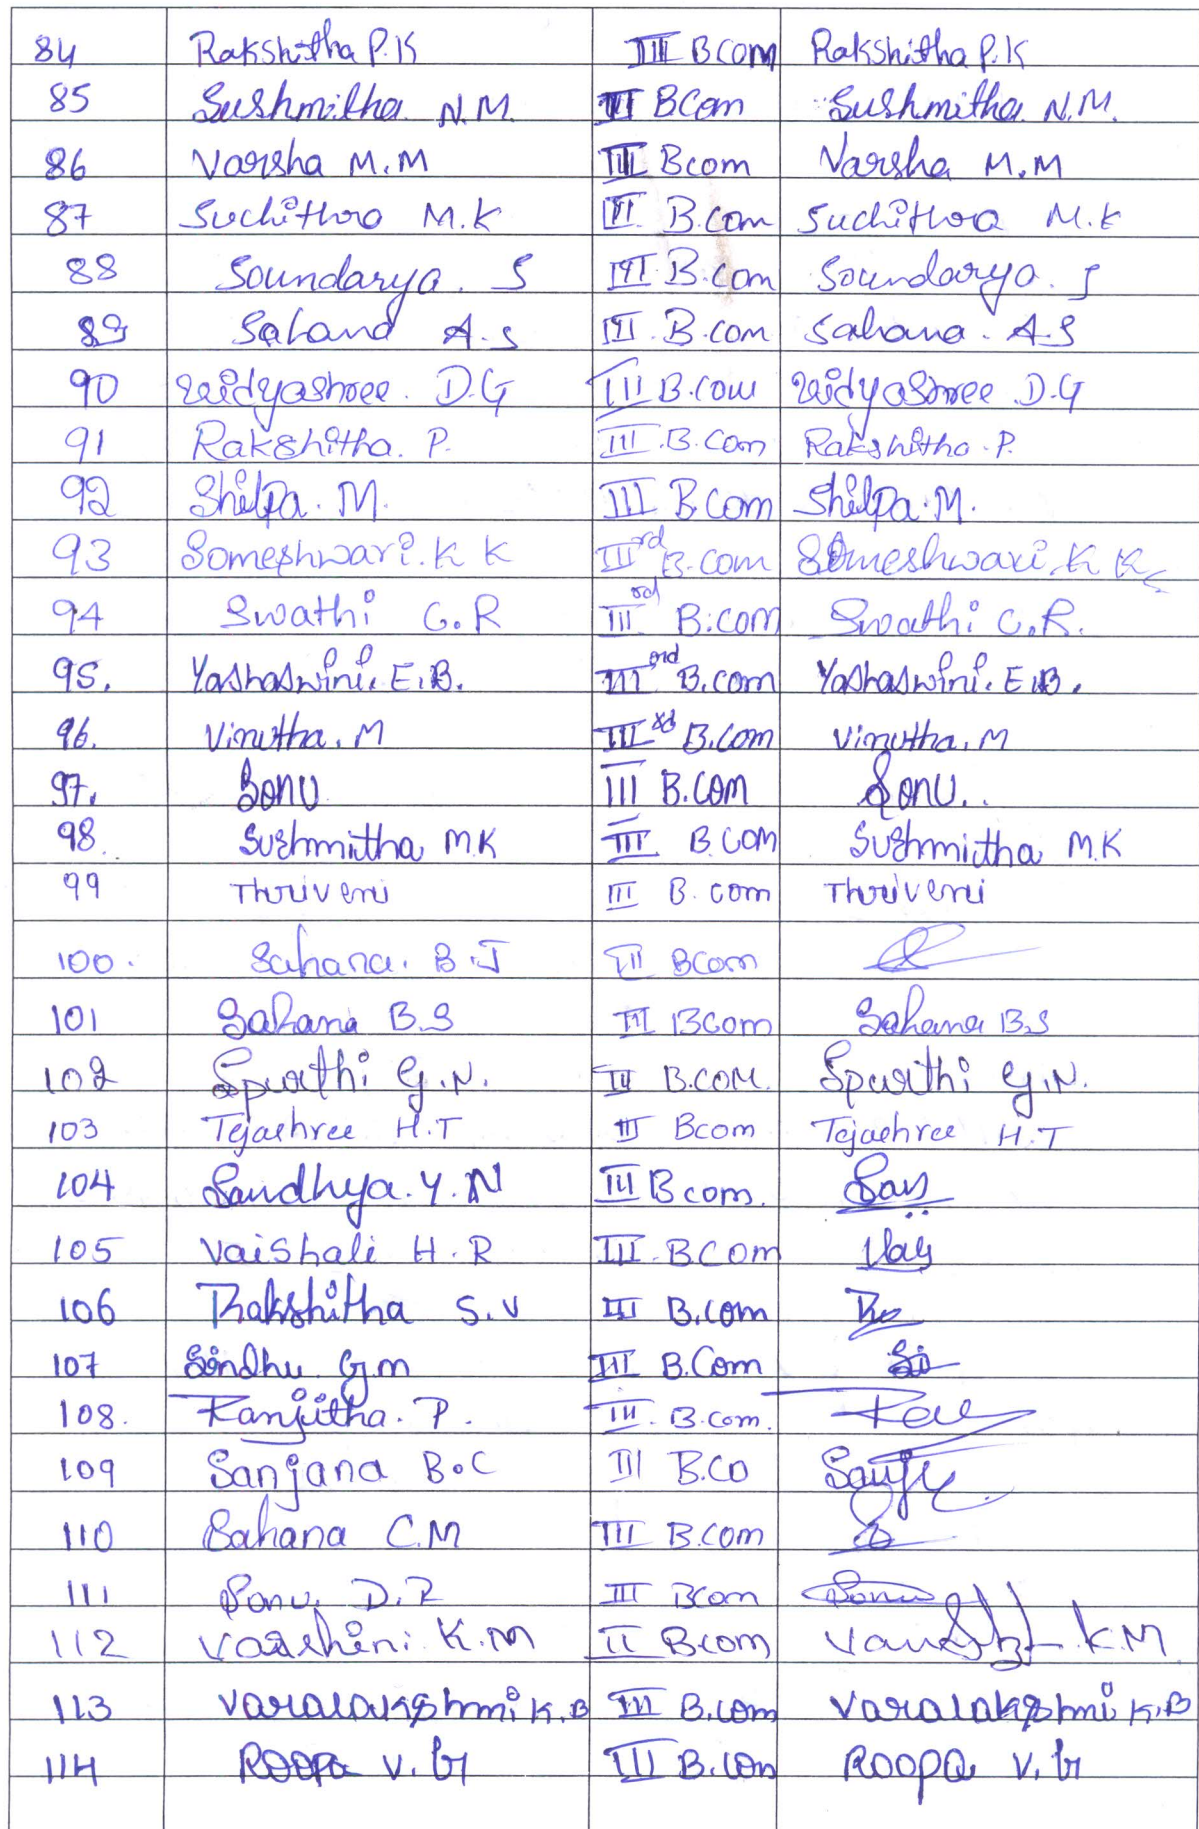 84 Rakshitha P.K III BCom Rakshitha P.K
85 Sushmitha N.M. III BCom Sushmitha N.M.
86 Varsha M.M III Bcom Varsha M.M
87 Suchithra M.K III B.com Suchithra M.K
88 Soundarya. S III B.com Soundarya. S
89 Sahana A.S III. B.com Sahana. A.S
90 Vidyashree. D.G III B.com Vidyashree D.G
91 Rakshitha. P. III.B.Com Rakshitha.P.
92 Shilpa. M. III B.Com Shilpa.M.
93 Someshwari.K K IIIrd B.com Someshwari.K K
94 Swathi C.R IIIrd B.com Swathi C.R.
95. Yashaswini. E.B. IIIrd B.com Yashaswini. E.B.
96. Vinutha. M IIIrd B.com Vinutha. M
97. Sonu III B.com Sonu..
98. Sushmitha M.K III B.com Sushmitha M.K
99 Thriveni III B.com Thriveni
100. Sahana. B.J III BCom
101 Sahana B.S III BCom Sahana B.S
102 Spurthi G.N. III B.COM. Spurthi G.N.
103 Tejashree H.T III Bcom Tejashree H.T
104 Sandhya.Y.N III B com. San
105 Vaishali H.R III.B.Com
106 Rakshitha S.V III B.com
107 Sindhu G.m III B.Com Si
108. Ranjitha. P. III. B.com.
109 Sanjana B.C III B.Co
110 Sahana C.M III B.com
111 Sonu D.R III BCom Sonu
112 Varshini K.M II Bcom K.M
113 Varalakshmi K.B III B.com Varalakshmi K.B
114 Roopa V.G III B.com Roopa V.G